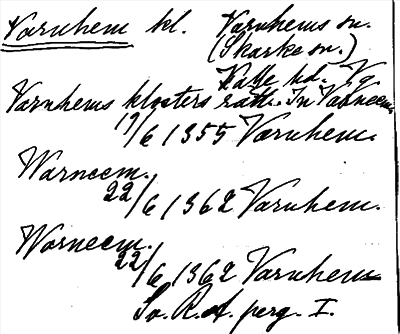 Varnhem kl. Varnhems sn.
(Skarke sn.)
Valle hd. Vg.
Varnhems klosters räth. In Varneem
19/6 1355 Varnhem.
Warneem.
22/6 1362 Varnhem.
Warneem.
22/6 1362 Varnhem
Sv. R. A. perg. I.